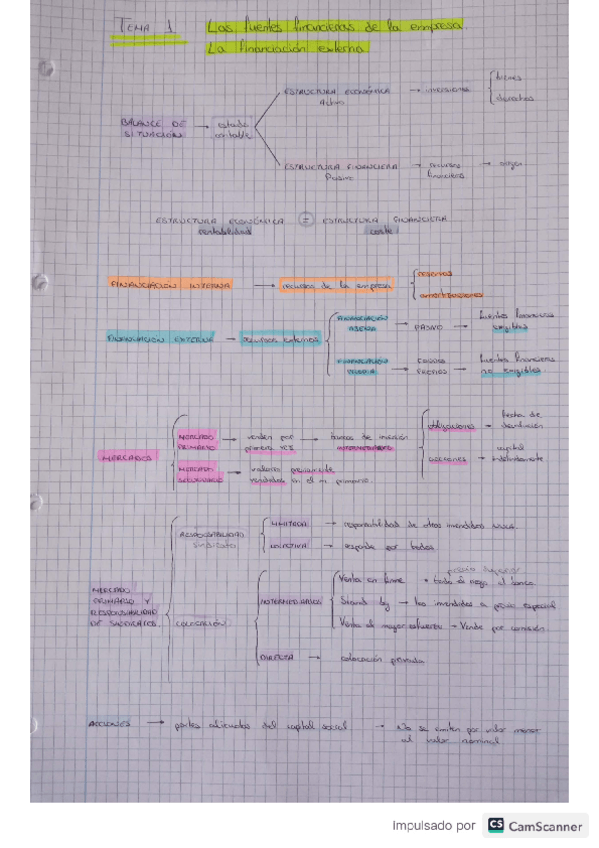 TEMA 1 Las fuentes financieras de la empresa.
La financiación externa
BALANCE DE SITUACIÓN → estado contable
ESTRUCTURA ECONÓMICA Activo → inversiones
bienes
derechos
ESTRUCTURA FINANCIERA Pasivo → recursos financieros → origen
ESTRUCTURA ECONÓMICA = ESTRUCTURA FINANCIERA
rentabilidad coste
FINANCIACIÓN INTERNA → recursos de la empresa
reservas
amortizaciones
FINANCIACIÓN EXTERNA → recursos externos
FINANCIACIÓN AJENA → PASIVO → fuentes financieras exigibles
FINANCIACIÓN PROPIA → FONDOS PROPIOS → fuentes financieras no exigibles
MERCADOS
MERCADO PRIMARIO → venden por primera vez → bancos de inversión
obligaciones → fecha de
acciones → capital
MERCADO SECUNDARIO → valores vendidos en el m. primario.
MERCADO PRIMARIO Y RESPONSABILIDAD DE SINDICATOS.
RESPONSABILIDAD sindicato
LIMITADA → responsabilidad de otros
→ responde por todos
COLOCACIÓN
INTERMEDIARIOS
Venta en firme → todo el riesgo el banco
Stand by → los a precio especial
Venta al mejor esfuerzo → Vende por comisión
DIRECTA → colocación privada
ACCIONES → partes alícuotas del capital social → No se emiten por valor menor
al valor nominal
Impulsado por CS CamScanner